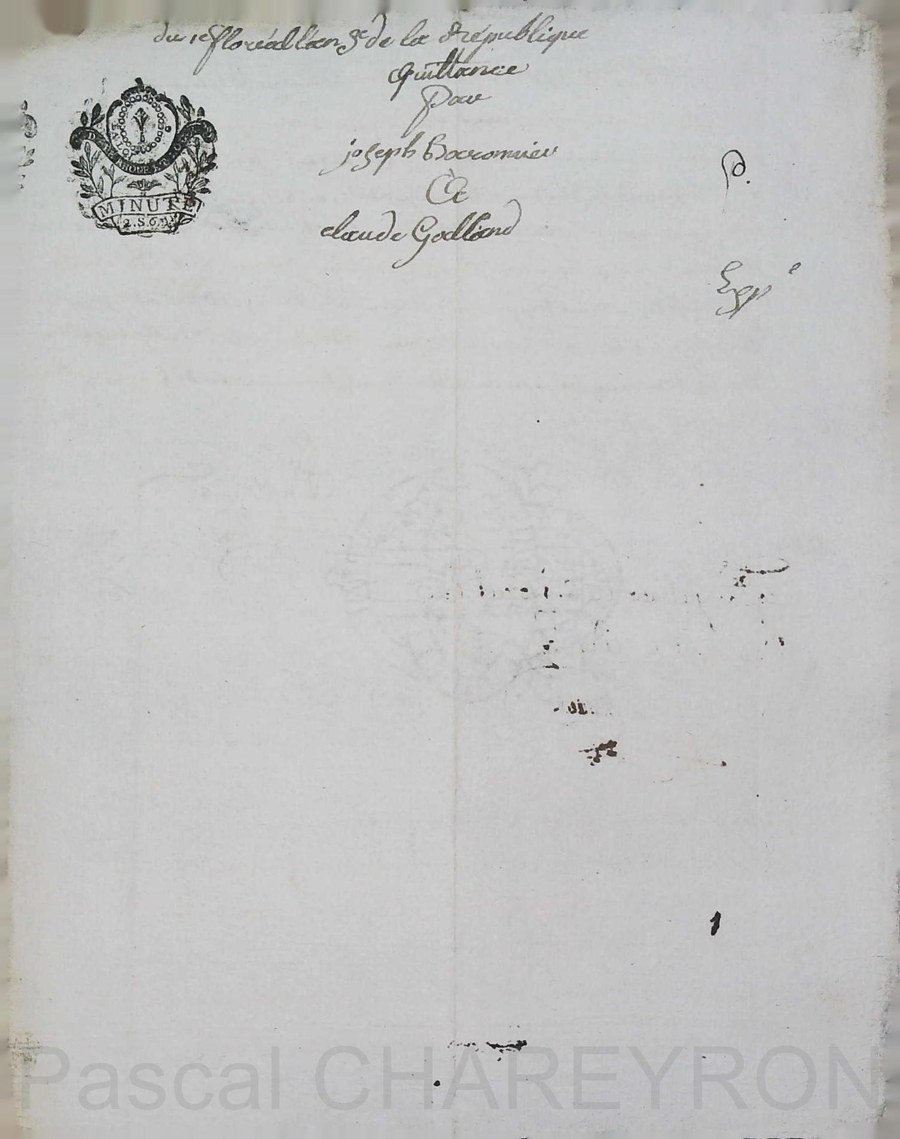 du 1er floréal l'an 9e de la république
Quittance
Pour
joseph Baronnier
A
claude Galland
MINUTE
P.
Exp e
Pascal CHAREYRON